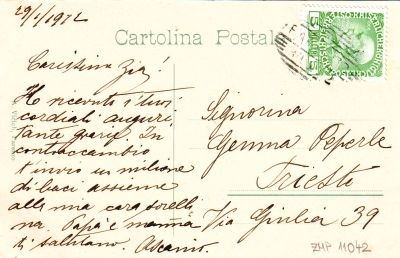 29/1/1912
Cartolina Postale
Carissima Zia!
Ho ricevuto i tuoi
cordiali auguri,
tante grazie. In
contraccambio
t'invio un milione
di baci assieme
alla mia cara sorelli
na. Papà e mamma
ti salutano. Ascanio.
Signorina
Gemma Peperle
Trieste
Via Giulia 39
ZMP 11042